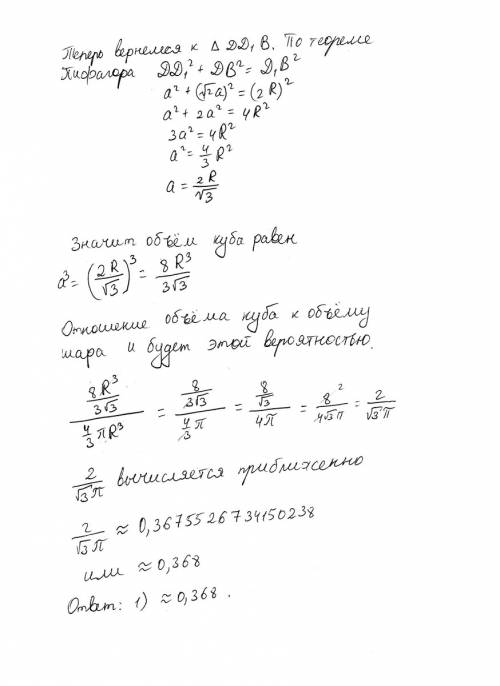 Теперь вернемся к △ DD₁B. По теореме
Пифагора DD₁² + DB² = D₁B²
a² + (√2a)² = (2R)²
a² + 2a² = 4R²
3a² = 4R²
a² = 4/3 R²
a = 2R/√3
Значит объём куба равен
a³ = (2R/√3)³ = 8R³/3√3
Отношение объёма куба к объёму
шара и будет этой вероятностью.
(8R³/3√3)/(4/3 πR³) = (8/3√3)/(4/3 π) = (8/√3)/4π = 8²/4√3π = 2/√3π
2/√3π вычисляется приближенно
2/√3π ≈ 0,3675526734150238
или ≈ 0,368
Ответ: 1) ≈ 0,368.